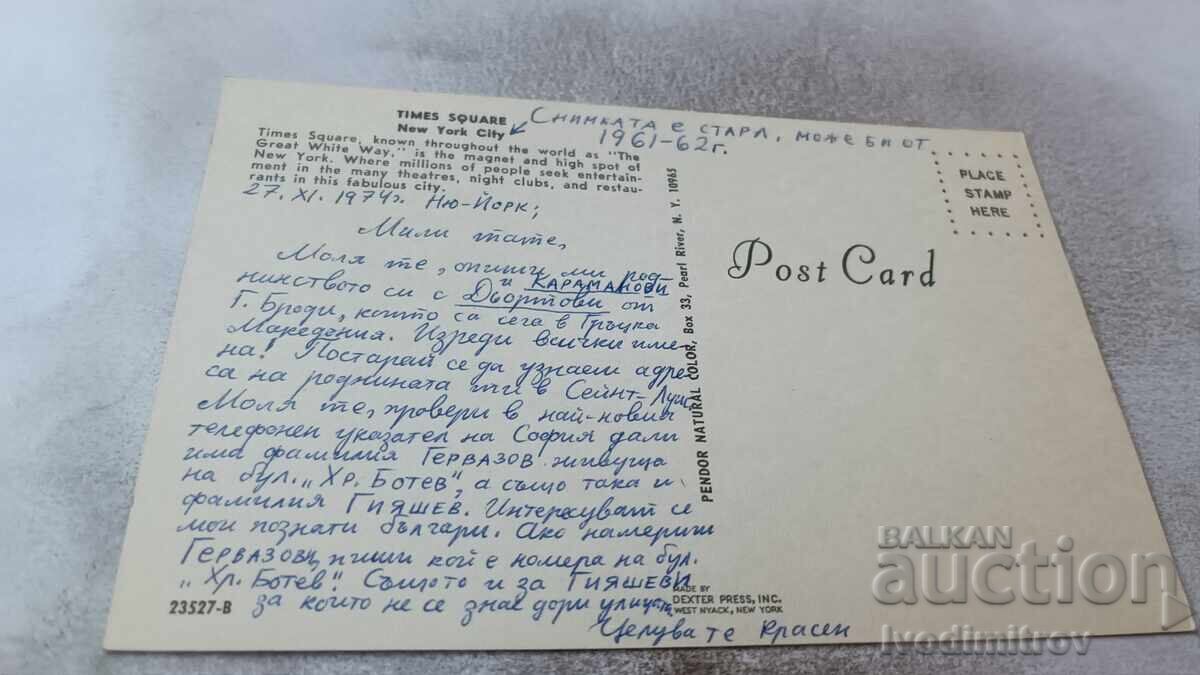 TIMES SQUARE
New York City
Снимката е стара, може би от
1961-62 г.
Times Square, known throughout the world as "The
Great White Way," is the magnet and high spot of
New York. Where millions of people seek entertain-
ment in the many theatres, night clubs, and restau-
rants in this fabulous city.
27. XI. 1974 г. Ню-Йорк;
Мили тате,
Моля те, опиши ми род-
нинството си с Двортови и КАРАМАНОВИ от
Г. Броди, които са сега в Гръцка
Македония. Изреди всички име-
на! Постарай се да узнаеш адре-
са на роднината ти в Сейнт-Луис
Моля те, провери в най-новия
телефонен указател на София дали
има фамилия ГЕРВАЗОВ живуща
на бул. „Хр. Ботев", а също така и
фамилия ГИЯШЕВ. Интересуват се
мои познати българи. Ако намериш
ГЕРВАЗОВЦИ, пиши кой е номера на бул.
„Хр. Ботев". Същото и за ГИЯШЕВИ
за които не се знае дори улицата
Целува те Красен
23527-B
PENDOR NATURAL COLOR, Box 33, Pearl River, N. Y. 10965
MADE BY
DEXTER PRESS, INC.
WEST NYACK, NEW YORK
Post Card
PLACE
STAMP
HERE
BALKAN
auction
Ivodimitrov